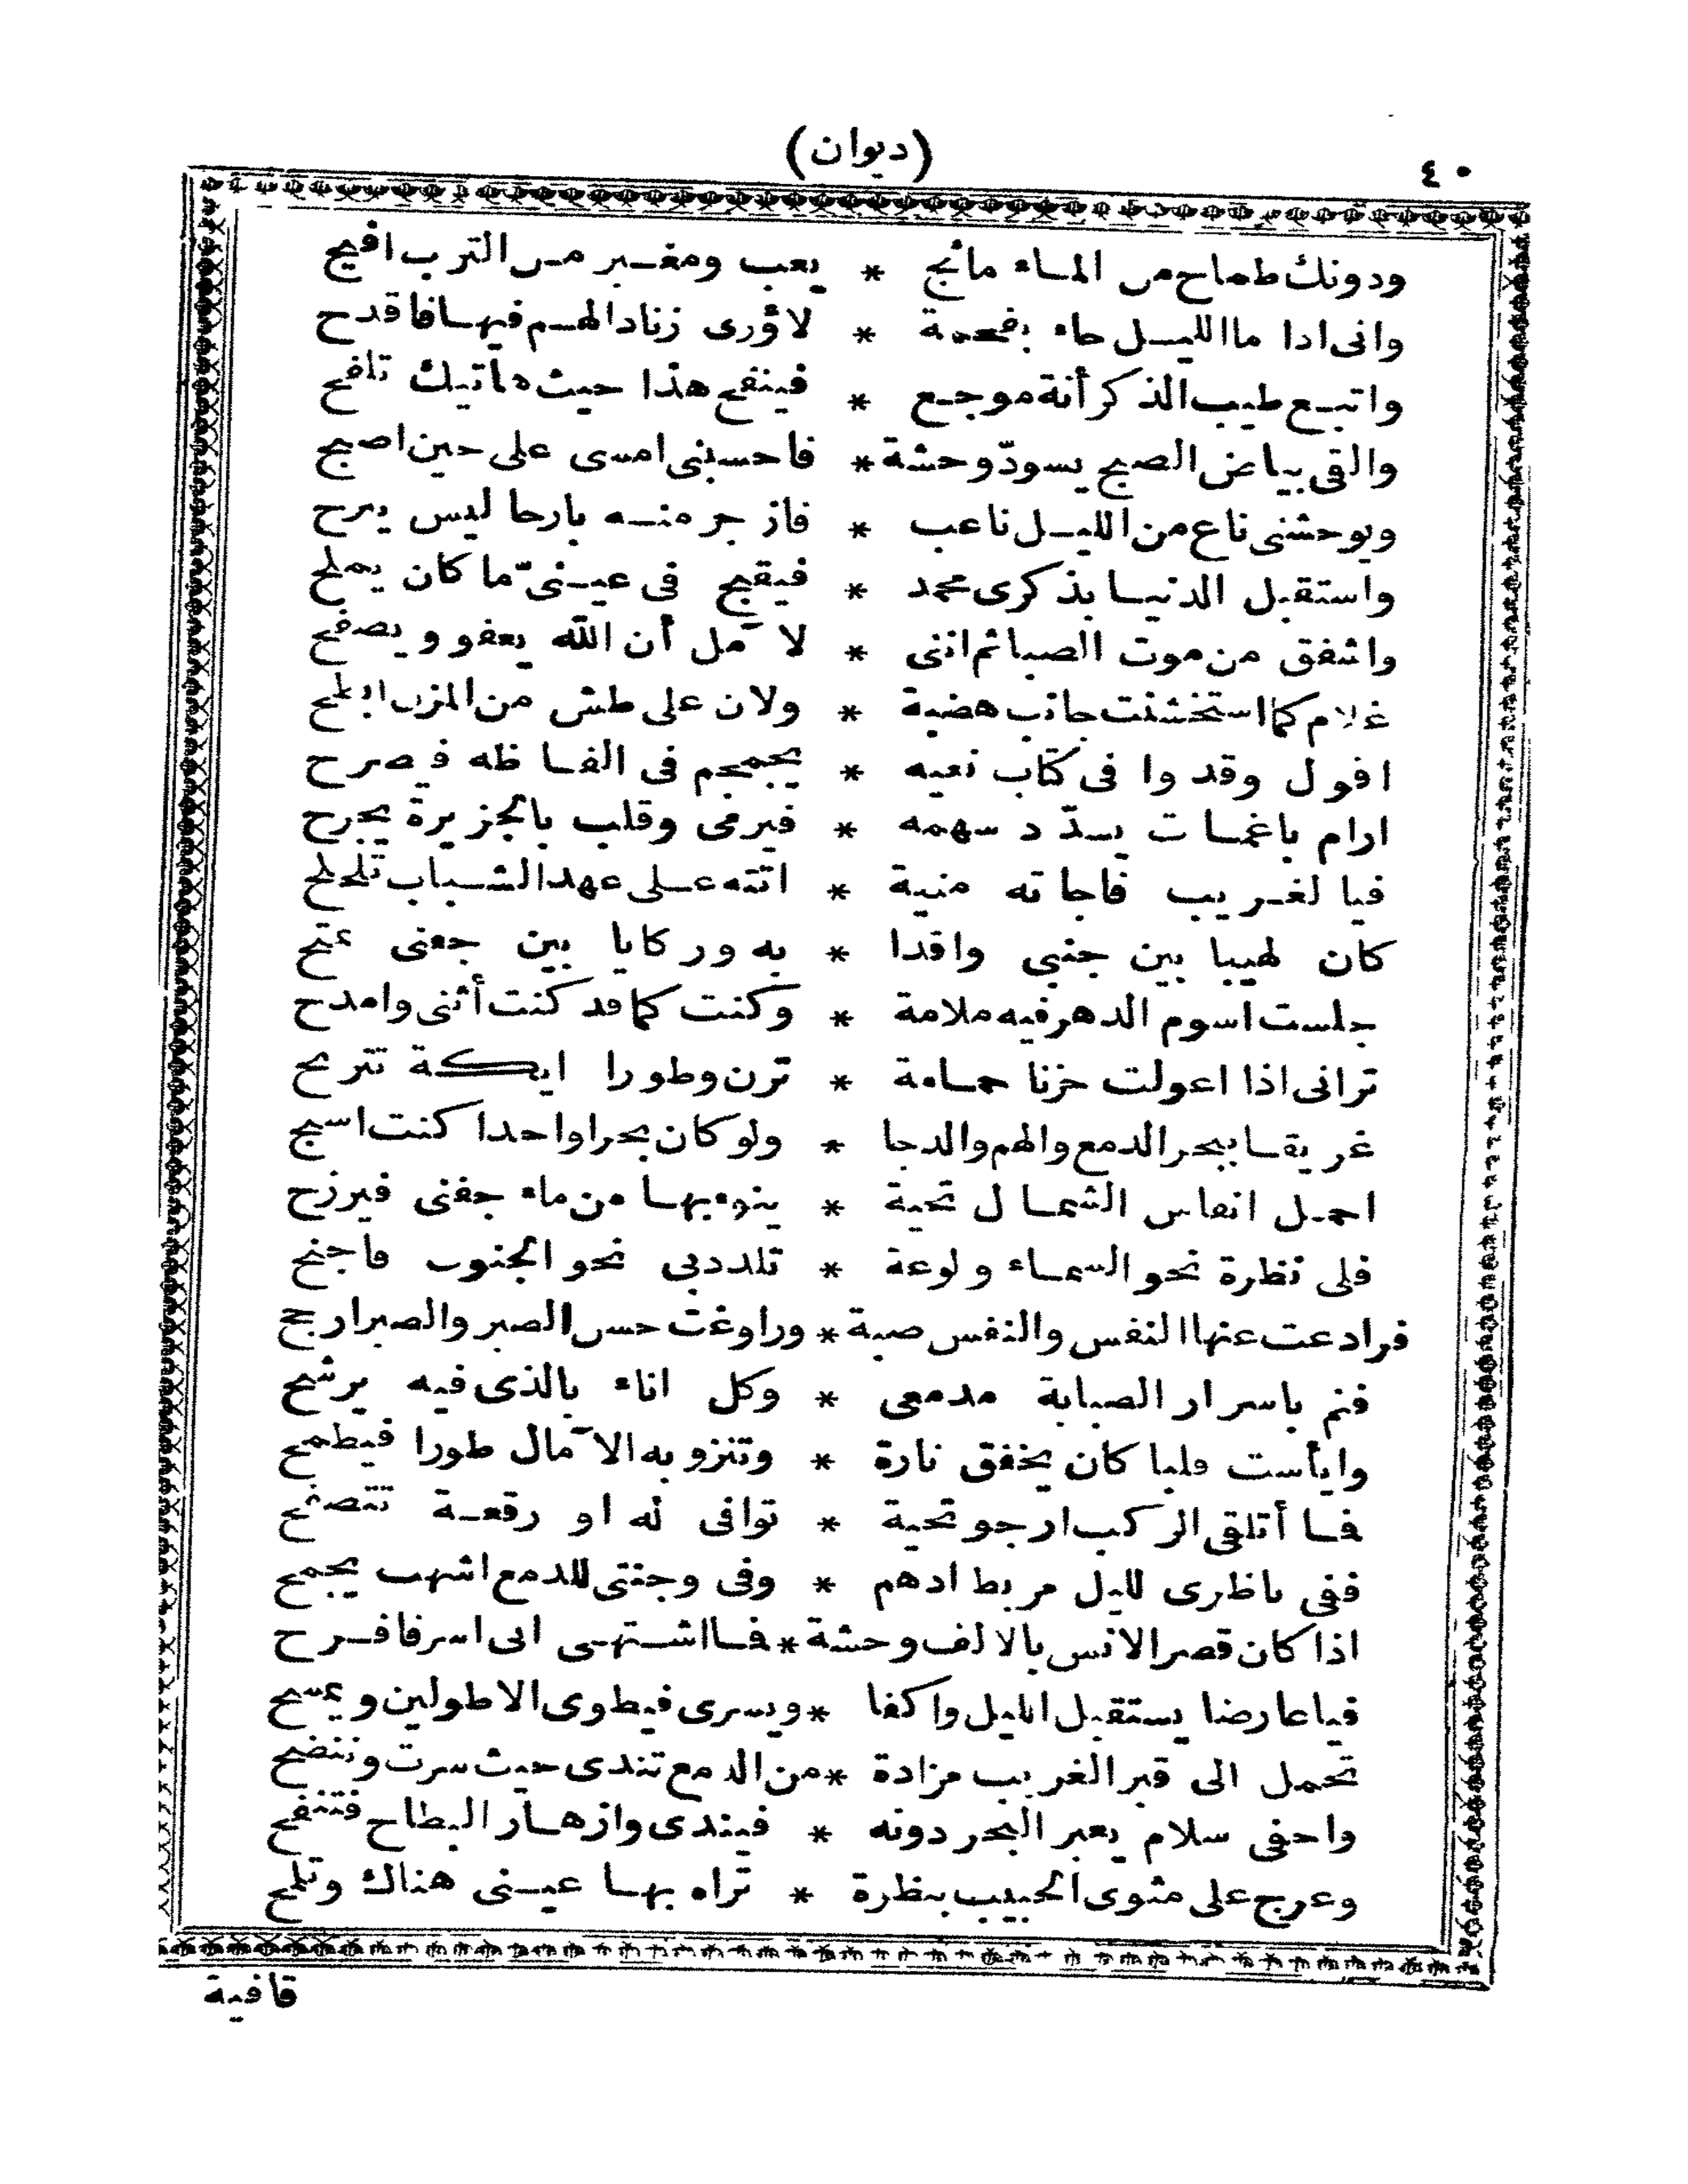 ٤٠
(ديوان)
ودونك طماح من المـاء مائج * يعب ومغـبر مـن الترب افيح
وانى اذا ما الليـل جاء بفحمة * لاؤرى زناد الهـم فيهـا فاقدح
واتبـع طيب الذكر أنة موجـع * فينفح هذا حيث هاتيك تلفح
والقى بياض الصبح يسودّ وحشة * فاحسبنى امسى على حين اصبح
ويوحشنى ناع من الليـل ناعب * فازجر منـه بارحا ليس يبرح
واستقبل الدنيـا بذكرى محمد * فيقبح فى عيـنىّ ما كان يملح
واشفق من موت الصبا ثم اننى * لا مل أن الله يعفو ويصفح
غلام كما استخشنت جانب هضبة * ولان على طش من المزن ابطح
اقول وقد وا فى كتاب نعيه * يجمجم فى الفـاظه فيصرح
ارام باغمـات يسدّد سهمه * فيرمى وقلب بالجزيرة يجرح
فيا لغـريب فاجاته منية * اتته عـلى عهد الشـباب تلحلح
كان لهيبا بين جنبي واقدا * به وركايا بين جفنى تمتح
جلست اسوم الدهر فيه ملامة * وكنت كما قد كنت أثنى وامدح
ترانى اذا اعولت حزنا حمـامة * ترن وطورا ايكة تترنح
غريقـا ببحر الدمع والهم والدجا * ولو كان بحرا واحدا كنت اسبح
احمـل انفاس الشمـال تحية * ينوء بهـا من ماء جفنى فيرزح
فلى نظرة نحو السمـاء ولوعة * تلددبي نحو الجنوب فاجنح
فرادعت عنها النفس والنفس صبة * وراوغت حسن الصبر والصبر ارجح
فنم باسرار الصبابة مدمعى * وكل اناء بالذى فيه يرشح
وايأست قلبا كان يخفق نارة * وتنزو به الآمال طورا فيطمح
فـا أتلقى الركب ارجو تحية * توافى له او رقعـة تتصفح
ففى ناظرى لليل مربط ادهم * وفى وجنتى للدمع اشهب يجمح
اذا كان قصر الانس بالالف وحشة * فـا اشـتهـى انى اسر فافـرح
فياعارضا يستقبل الليل واكفا * ويسرى فيطوى الاطولين ويمسح
تحمل الى قبر الغريب مزادة * من الدمع تندى حيث سرت وتنضح
واحفى سلام يعبر البحر دونه * فيندى وازهـار البطاح فتنفح
وعرج على مثوى الحبيب بنظرة * تراه بهـا عيـنى هناك وتلمح
قافية